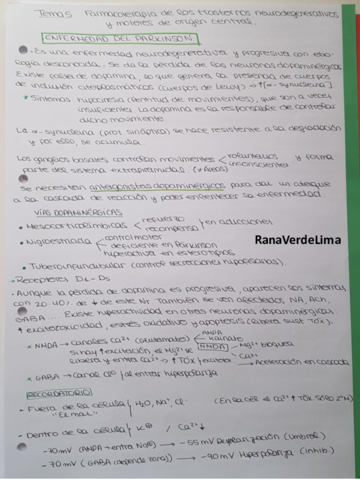 Tema 5 Farmacoterapia de los trastornos neurodegenerativos
y motores de origen central.
ENFERMEDAD DEL PARKINSON
- Es una enfermedad neurodegenerativa y progresiva con etio-
logía desconocida. Se da la pérdida de las neuronas dopaminérgicas
Existe falta de dopamina, lo que genera la presencia de cuerpos
de inclusión citoplasmáticos (cuerpos de Lewy) → ↑[α-synucleina]
* Síntomas: hipocinesia (lentitud de movimientos), que son a veces
insuficientes. La dopamina es la responsable de controlar
dicho movimiento
La α-synucleina (prot. sináptica) se hace resistente a la degradación
y por eso, se acumula
Los ganglios basales controlan movimientos voluntarios y forma
inconscientes
parte del sistema extrapiramidal
Se necesitan antagonistas dopaminérgicos para dar un ataque
a la cascada de reacción y poder enlentecer la enfermedad.
VÍAS DOPAMINÉRGICAS
• Mesocorticolímbicas resuelto
recompensa en adicciones
RanaVerdeLima
• Nigroestriada control motor
deficiente en Parkinson
hiperactiva en estereotipias
• Tuberoinfundibular (control secreciones hipofisarias).
- Receptores D1 - D5
- Aunque la pérdida de dopamina es progresiva, aparecen los síntomas
con 20-40% de ↓ de este Nt. También se ven afectados, NA, Ach,
GABA. Existe hiperactividad en otras neuronas dopaminérgicas.
↑ excitotoxicidad, estrés oxidativo y apoptosis (libera sust. tóx.).
AMPA
• NMDA → canales Ca²⁺ (glutamato) kainato
NMDA Mg²⁺
Si hay ↑ excitación el Mg²⁺ se Ca²⁺
libera y entra Ca²⁺ → ↑ tóx Activación en cascada
• GABA → canal Cl⁻ si entra hiperpolariza
RECORDATORIO
- Fuera de la célula / H₂O, Na⁺, Cl⁻
"El mar"
- Dentro de la célula / K⊕ / Ca²⁺↓
-70mV (AMPA → entra Na⊕) → -55 mV Despolarización (umbral)
-70mV (GABA) → -90mV Hiperpolariza (inhib.)